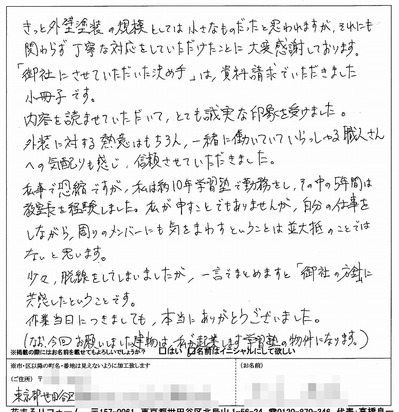 きっと外壁塗装の規模としては小さなものだったと思われますが、それにも
関わらず丁寧な対応をしていただけたことに大変感謝しております。
「御社にさせていただいた決め手」は、資料請求でいただきました
小冊子です。
内容を読ませていただいて、とても誠実な印象を受けました。
外装に対する熱意はもちろん、一緒に働いていていらっしゃる職人さん
への気配りも感じ、信頼させていただきました。
私事で恐縮ですが、私は約10年学習塾で勤務をし、その中の5年間は
教室長を経験しました。私が申すことでもありませんが、自分の仕事を
しながら、周りのメンバーにも気をまわすということは並大抵のことでは
ないと思います。
少々、脱線をしてしまいましたが、一言でまとめますと「御社の方針に
共感したということです。
作業当日につきましても、本当にありがとうございました。
(なお、今回お願いしました建物は、私が起業します学習塾の物件になります。)
※掲載の際にはお名前を載せてもよろしいでしょうか? □はい ☑お名前はイニシャルにして欲しい
※市・区以降の町名・番地は見えないように加工致します
(ご住所) 〒 (お名前)
東京都世田谷区
〒157-0061 東京都世田谷区北烏山1-56-24 ☎0120-870-346 代表:高橋良一